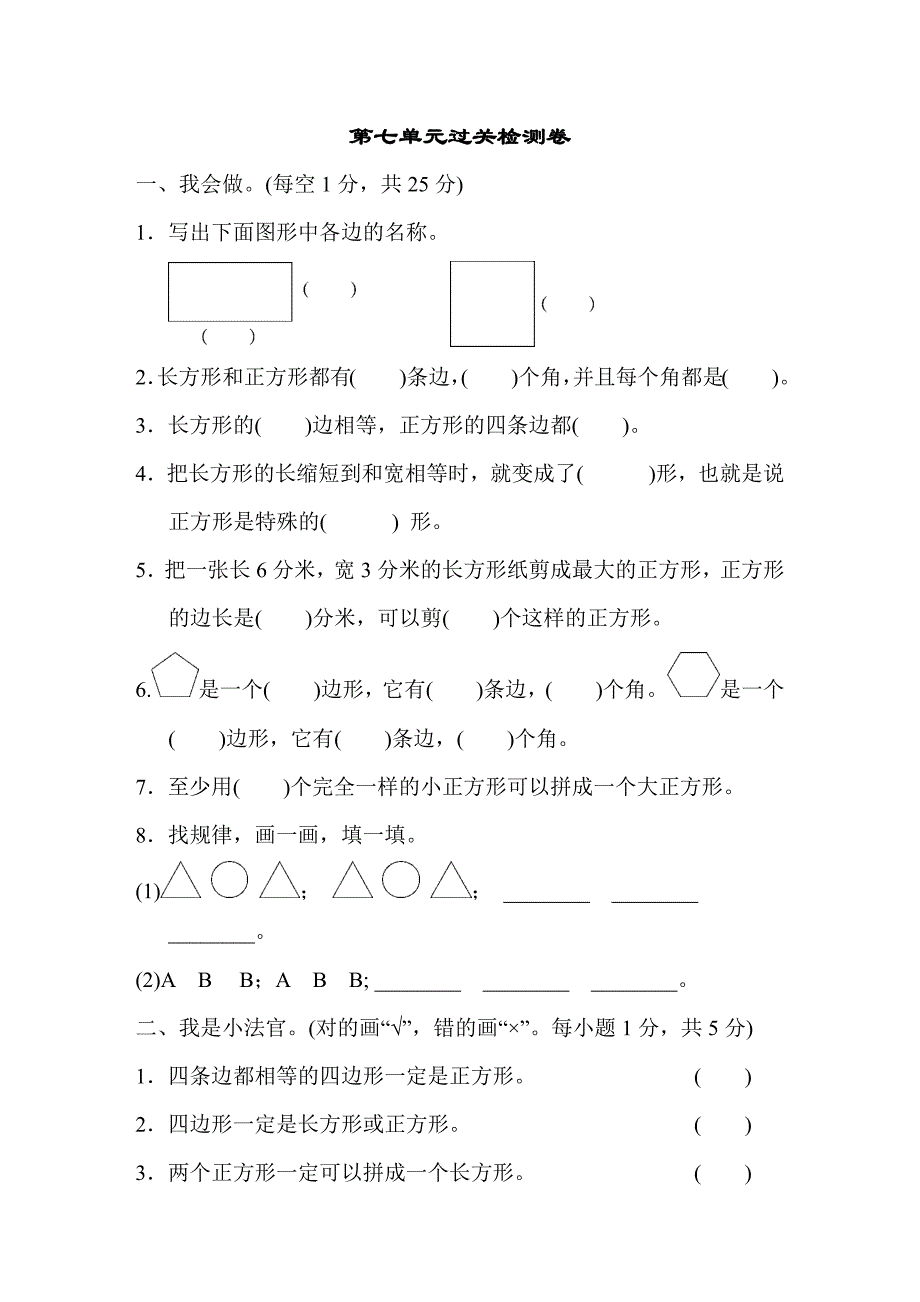 第七单元过关检测卷
一、我会做。(每空1分，共25分)
1．写出下面图形中各边的名称。
(　　)
(　　)
(　　)
2．长方形和正方形都有(　　)条边，(　　)个角，并且每个角都是(　　)。
3．长方形的(　　)边相等，正方形的四条边都(　　)。
4．把长方形的长缩短到和宽相等时，就变成了(　　　)形，也就是说
正方形是特殊的(　　　) 形。
5．把一张长6分米，宽3分米的长方形纸剪成最大的正方形，正方形
的边长是(　　)分米，可以剪(　　)个这样的正方形。
6.是一个(　　)边形，它有(　　)条边，(　　)个角。是一个
(　　)边形，它有(　　)条边，(　　)个角。
7．至少用(　　)个完全一样的小正方形可以拼成一个大正方形。
8．找规律，画一画，填一填。
(1)△ ○ △； △ ○ △； ________　________
________。
(2)A　B　B；A　B　B; ________　________　________。
二、我是小法官。(对的画“√”，错的画“×”。每小题1分，共5分)
1．四条边都相等的四边形一定是正方形。 (　　)
2．四边形一定是长方形或正方形。 (　　)
3．两个正方形一定可以拼成一个长方形。 (　　)